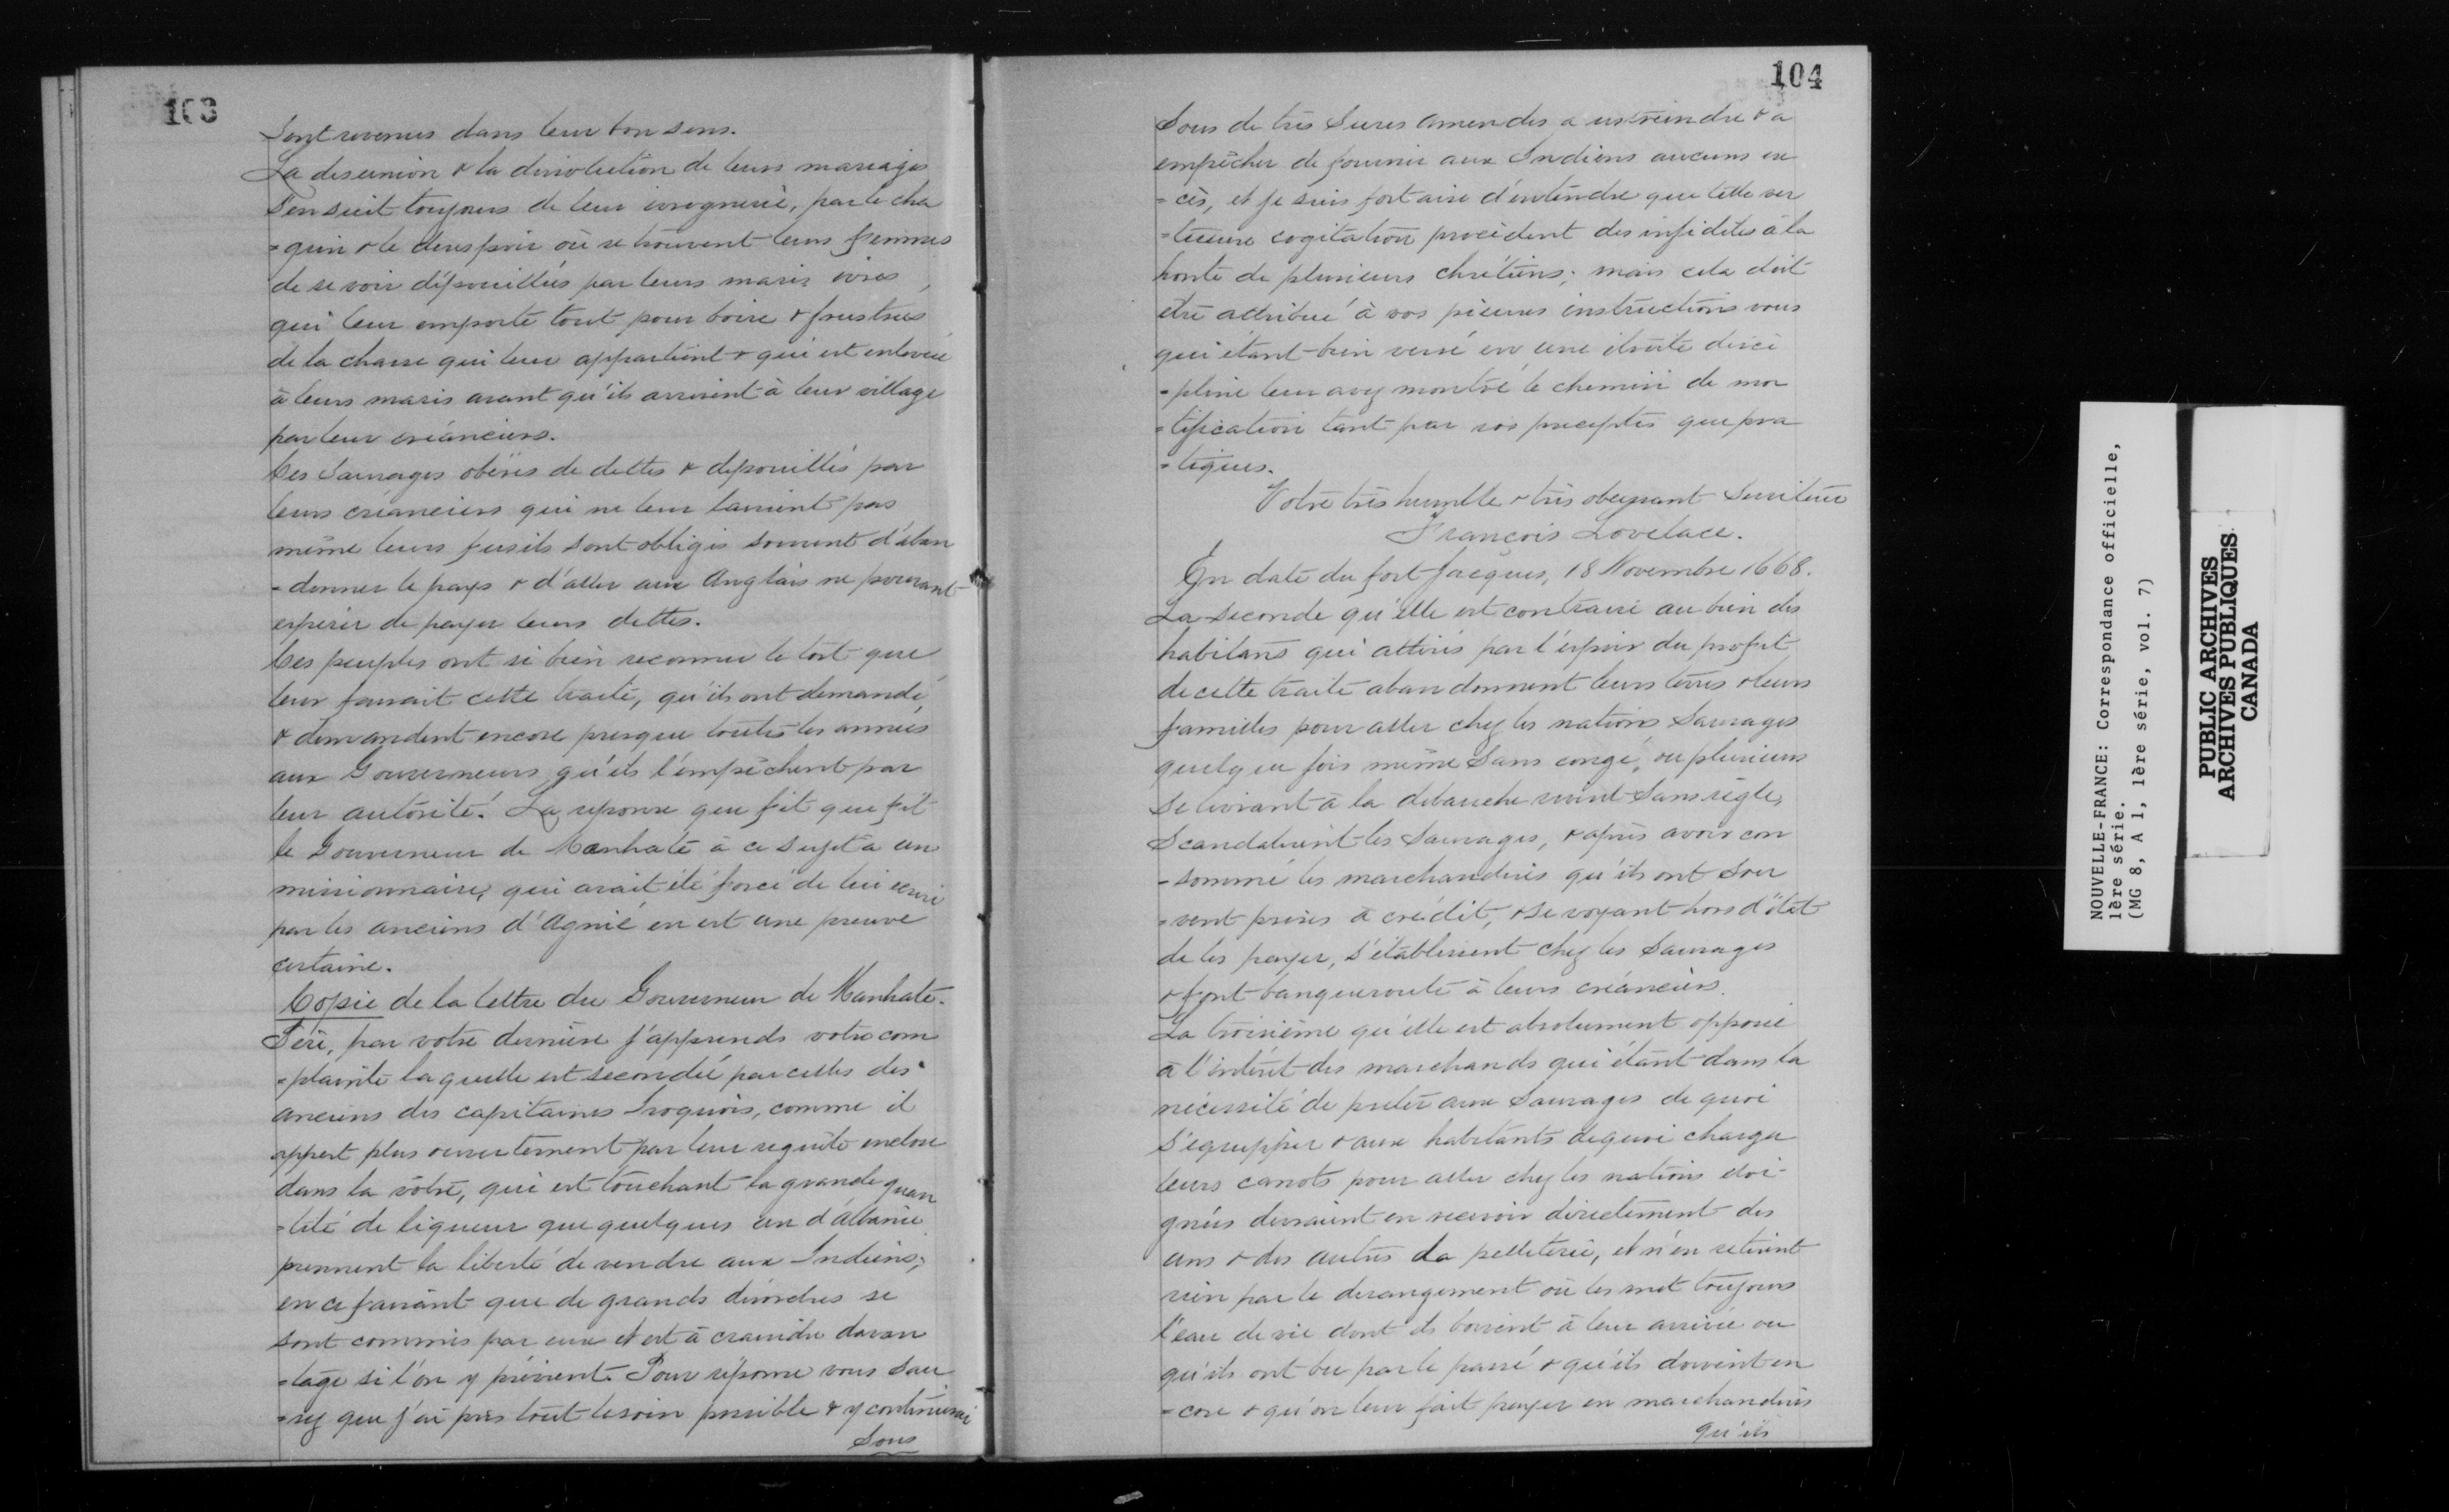 103
Sont revenus dans leur bon sens.
La desunion & la dissolution de leurs mariages
s'en suit toujours de leur ivrognerie, par le cha
=grin & le desespoir où se trouvent leurs femmes
de se voir dépouillées par leurs maris ivres,
qui leur emporte tout pour boire & frustrées
de la chasse qui leur appartient & qui est enlevée
à leurs maris avant qu'ils arrivent à leur village
par leur créanciers.
Ces Sauvages obérés de dettes & depouillés par
leurs créanciers qui ne leur laissent pas
même leurs fusils sont obligés souvent d'aban
=donner le pays & d'aller aux Anglais ne pouvant
espérer de payer leurs dettes.
Ces peuples ont si bien reconnu le tort que
leur faisait cette traite, qu'ils ont demandé,
& demandent encore presque toutes les années
aux Gouverneurs qu'ils l'empêchent par
leur autorité. La reponse que fit que fit
le Gouverneur de Manhate à ce sujet à un
missionnaire, qui avait été forcé de lui ecrire
par les anciens d'Agnié en est une preuve
certaine.
Copie de la lettre du Gouverneur de Manhate.
Père, par votre dernière j'apprends votre com
=plainte laquelle est secondée par celles des
anciens des capitaines Iroquois, comme il
appert plus ouvertement par leur requête enclose
dans la vôtre, qui est touchant la grande quan
=tité de liqueur que quelques un d'Albanie
prennent la liberté de vendre aux Indiens;
en ce faisant que de grands désordres se
sont commis par eux et est à craindre davan
=tage si l'on y prévient. Pour réponse vous sau
=rez que j'ai pris tout le soin possible & y continuerai
Sous
104
Sous de très Sures amendes a restreindre & a
empêcher de fournir aux Indiens aucuns ex
=cès, et je suis fort aise d'entendre que telle ver
=tueuse cogitation procèdent des infideles à la
honte de plusieurs chrétiens; mais cela doit
être attribué à vos pieuses instructions vous
qui étant bien versé en une étroite disci
=pline leur avez montré le chemin de mor
=tification tant par vos preceptes que pra
=tiques.
Votre très humble & très obeyssant Serviteur
François Lovelace.
En date du fort Jacques, 18 Novembre 1668.
La seconde qu'elle est contraire au bien des
habitans qui attirés par l'espoir du profit
de cette traite abandonnent leurs terres & leurs
familles pour aller chez les nations Sauvages
quelque fois même sans congé, ou plusieurs
se livrant à la debauche vivent sans règle,
Scandalisent les Sauvages, & après avoir con
=sommé les marchandises qu'ils ont sou
=vent prises à crédit, & se voyant hors d'état
de les payer, s'établissent chez les Sauvages
& font banqueroute à leurs créanciers.
La troisième qu'elle est absolument opposée
à l'intérêt des marchands qui étant dans la
nécessité de preter aux Sauvages de quoi
s'equipper & aux habitants dequoi charger
leurs canots pour aller chez les nations eloi-
gnées devraient en recevoir directement des
uns & des autres la pelleterie, et n'en retirent
rien par le derangement où les met toujours
l'eau de vie dont ils boivent à leur arrivée ou
qu'ils ont bu par le passé & qu'ils doivent en
=core & qu'on leur fait payer en marchandises
qu'ils
NOUVELLE-FRANCE: Correspondance officielle,
1ère série.
(MG 8, A 1, 1ère série, vol. 7)
PUBLIC ARCHIVES
ARCHIVES PUBLIQUES
CANADA